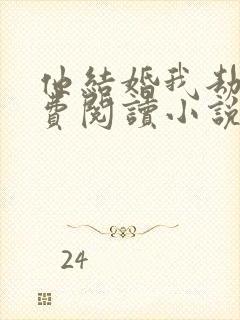 他結婚我劫
費閱讀小說
24